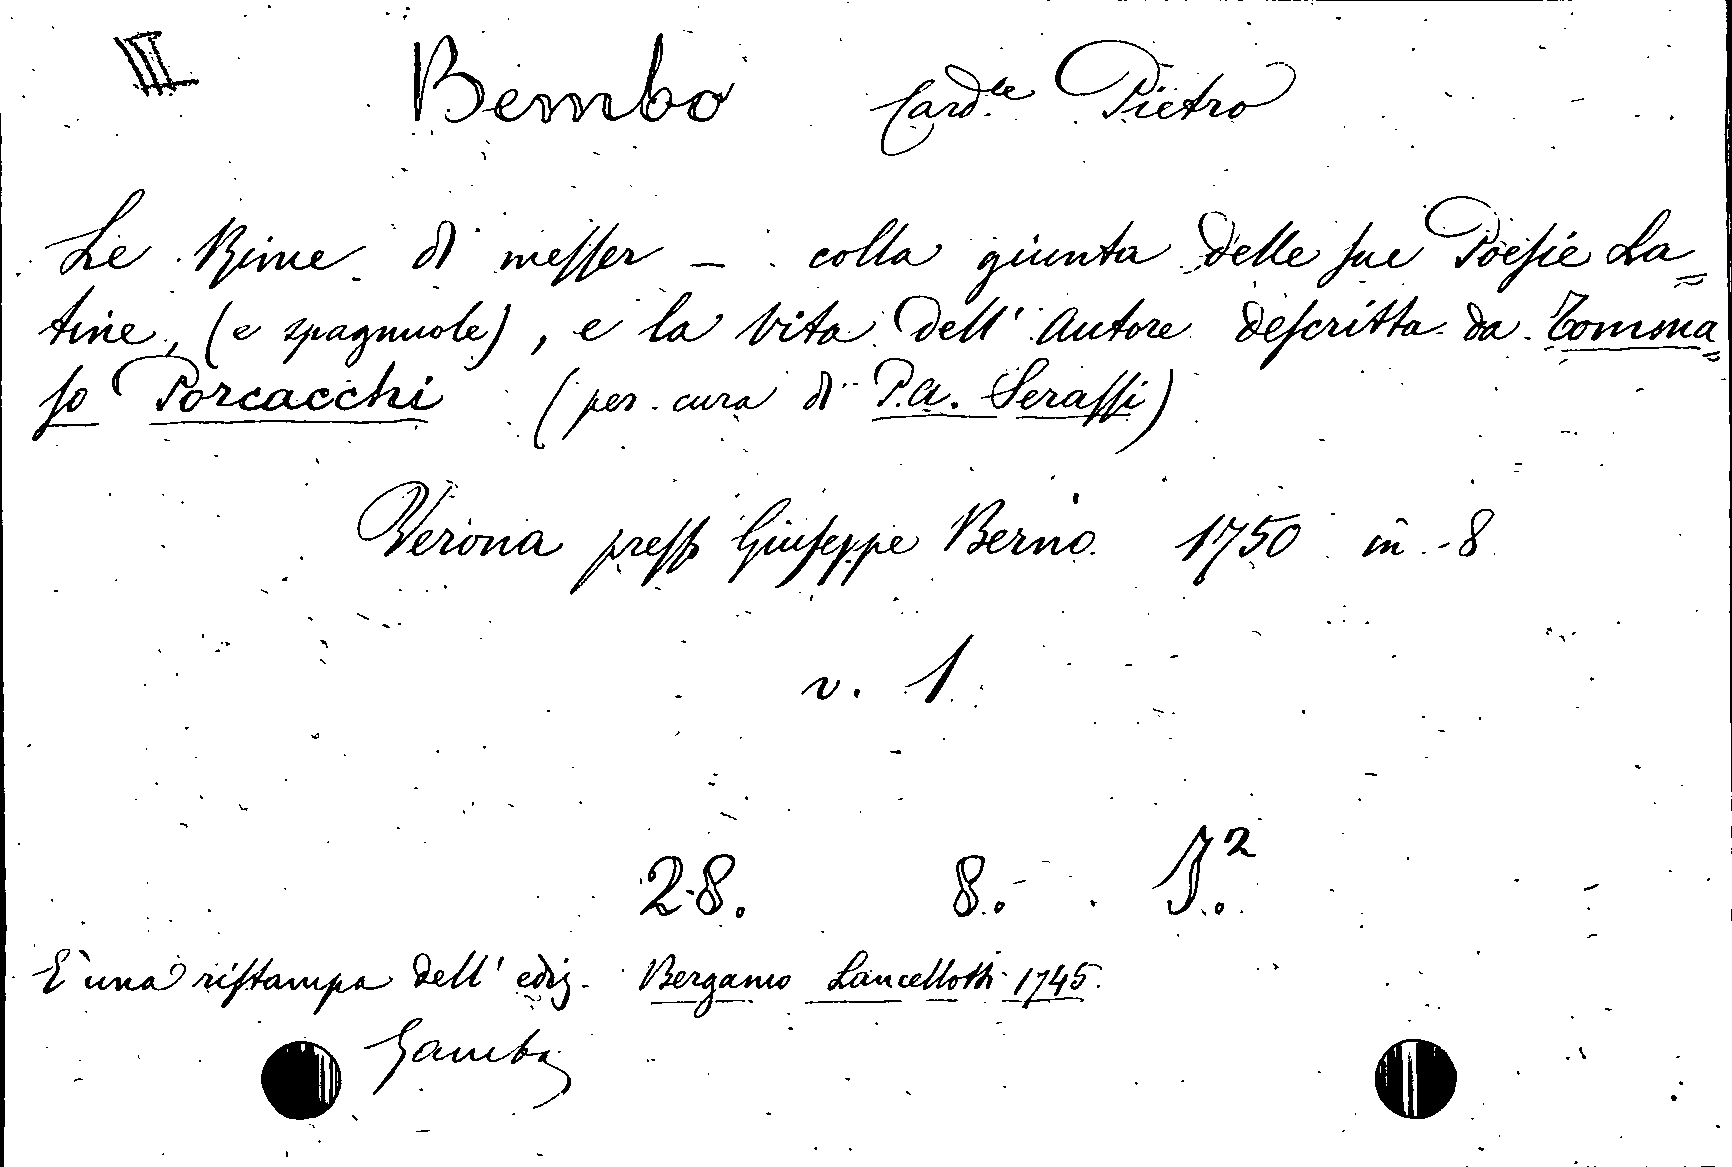 III Bembo Card.le Pietro
Le Rime di messer — colla giunta delle sue Poesie La=
tine, (e spagnuole), e la vita dell' Autore descritta da Tomma=
so Porcacchi (per cura di P.A. Serassi)
Verona presso Giuseppe Berno 1750 in 8
v. 1
28. 8. J.2
È una ristampa dell' ediz. Bergamo Lancellotti 1745.
Gamba